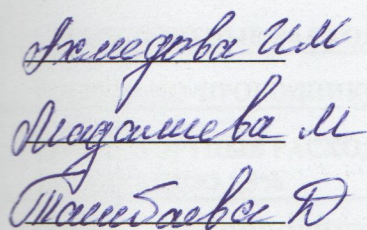 Ахмедова ИМ
Мадалиева М
Ташбаева Д